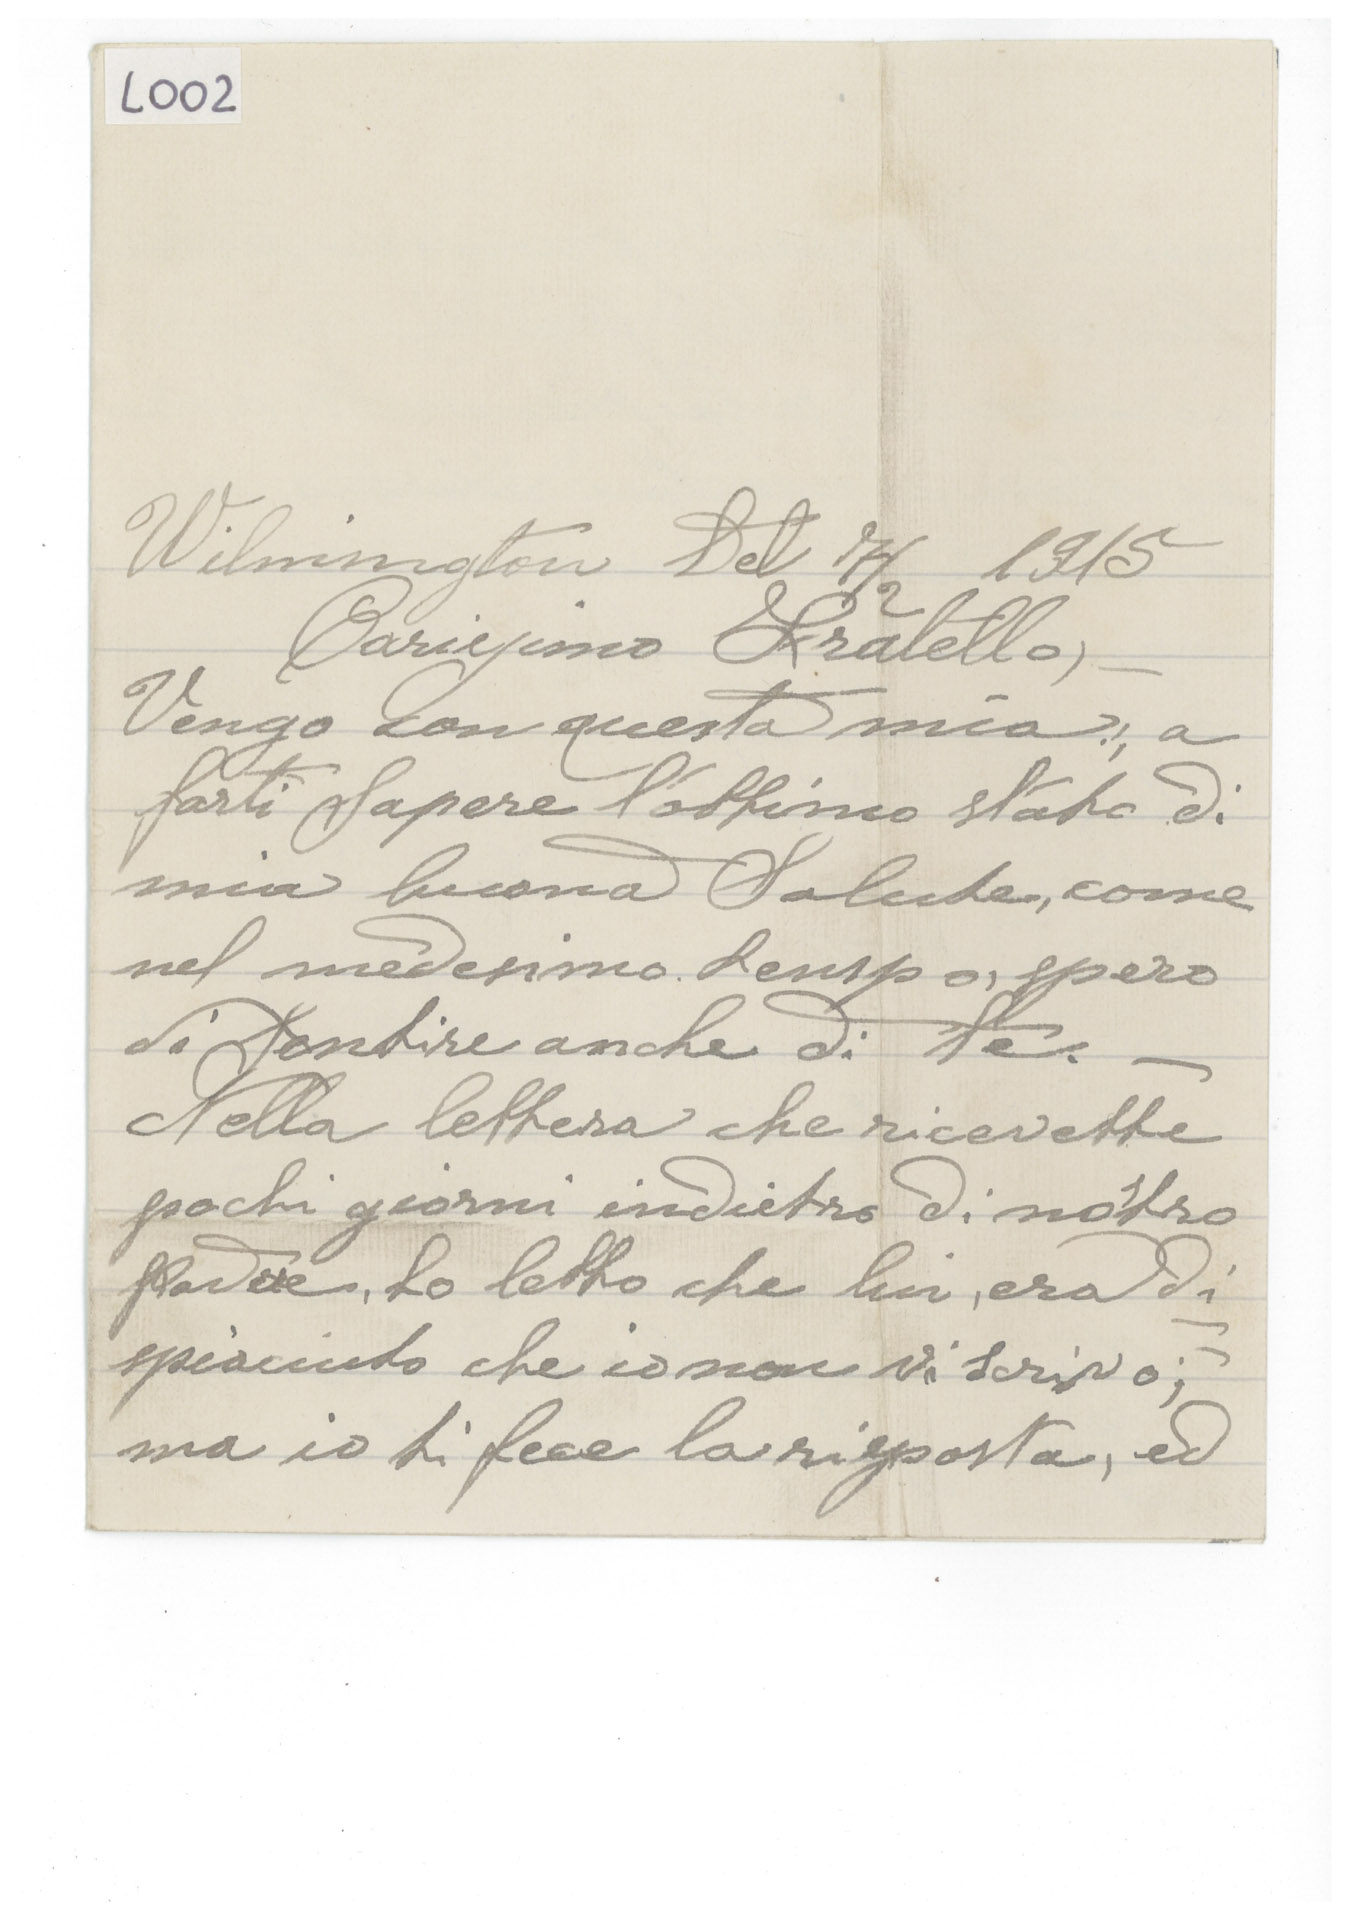 L002
Wilmington Del 17/2 1915
Carissimo Fratello,—
Vengo con questa mia, a
farti Sapere l'ottimo stato di
mia buona Salute, come
nel medesimo tempo, spero
di Sentire anche di te. —
Nella lettera che ricevette
pochi giorni indietro di nostro
padre, ho letto che lui, era di=
spiaciuto che io non vi scrivo;
ma io ti fece la risposta, ed